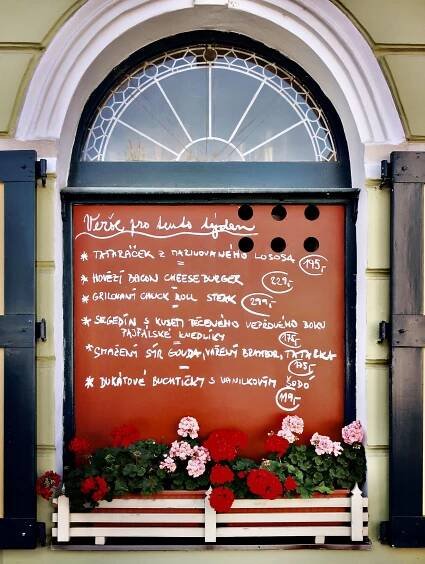 Verše pro tento týden
* TATARÁČEK Z MARINOVANÉHO LOSOSA 195,-
* HOVĚZÍ BACON CHEESEBURGER 229,-
* GRILOVANÝ CHUCK ROLL STEAK 299,-
* SEGEDÍN S KUSEM PEČENÉHO VEPŘOVÉHO BOKU
KNEDLÍKY 175,-
* SMAŽENÝ SÝR GOUDA, VAŘENÝ BRAMBOR, TATARKA
175,-
* DUKÁTOVÉ BUCHTIČKY S VANILKOVÝM ŠODÓ
119,-